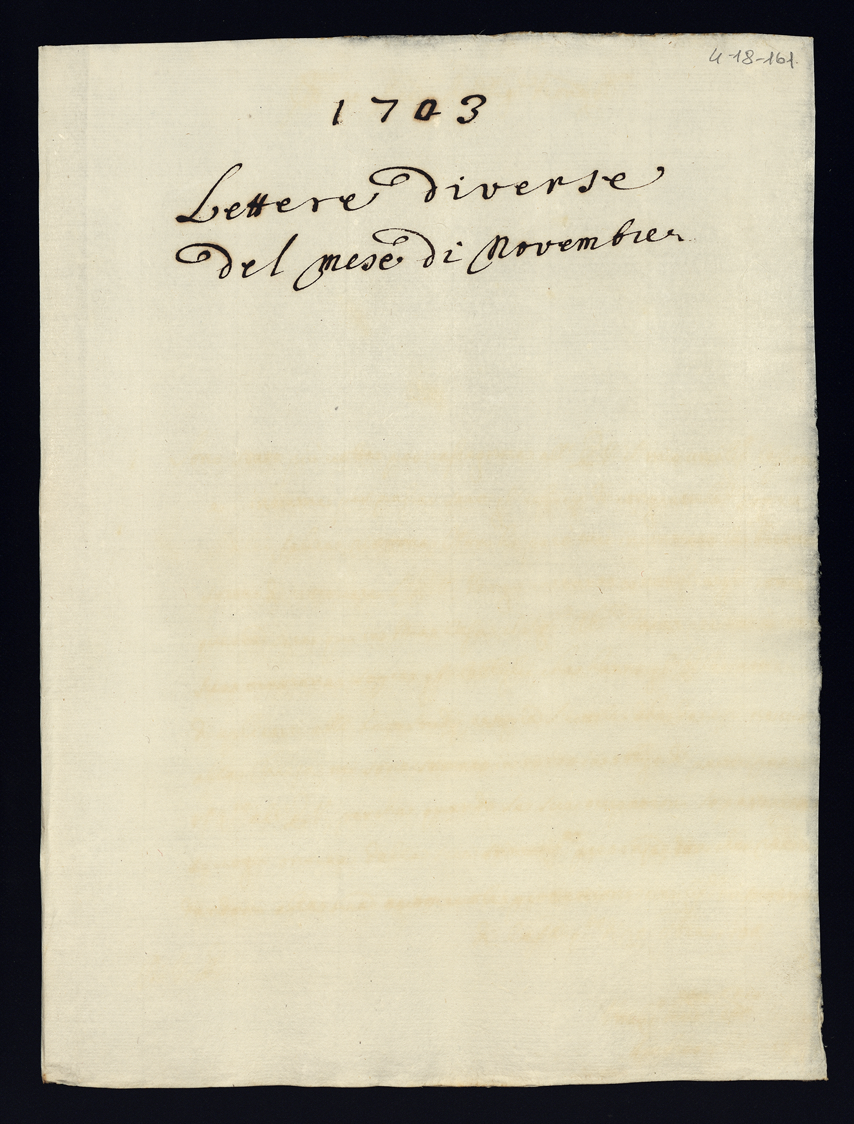 4-18-161.
1703
Lettere diverse
del mese di Novembre